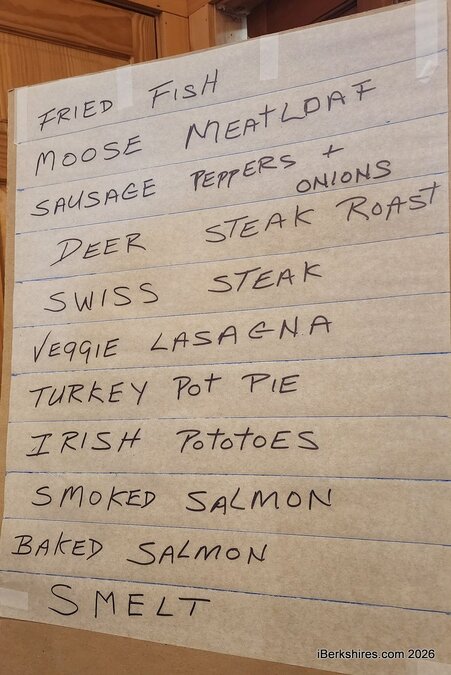 FRIED FISH
MOOSE MEATLOAF
SAUSAGE PEPPERS +
ONIONS
DEER STEAK ROAST
SWISS STEAK
VEGGIE LASAGNA
TURKEY POT PIE
IRISH POTOTOES
SMOKED SALMON
BAKED SALMON
SMELT
iBerkshires.com 2026